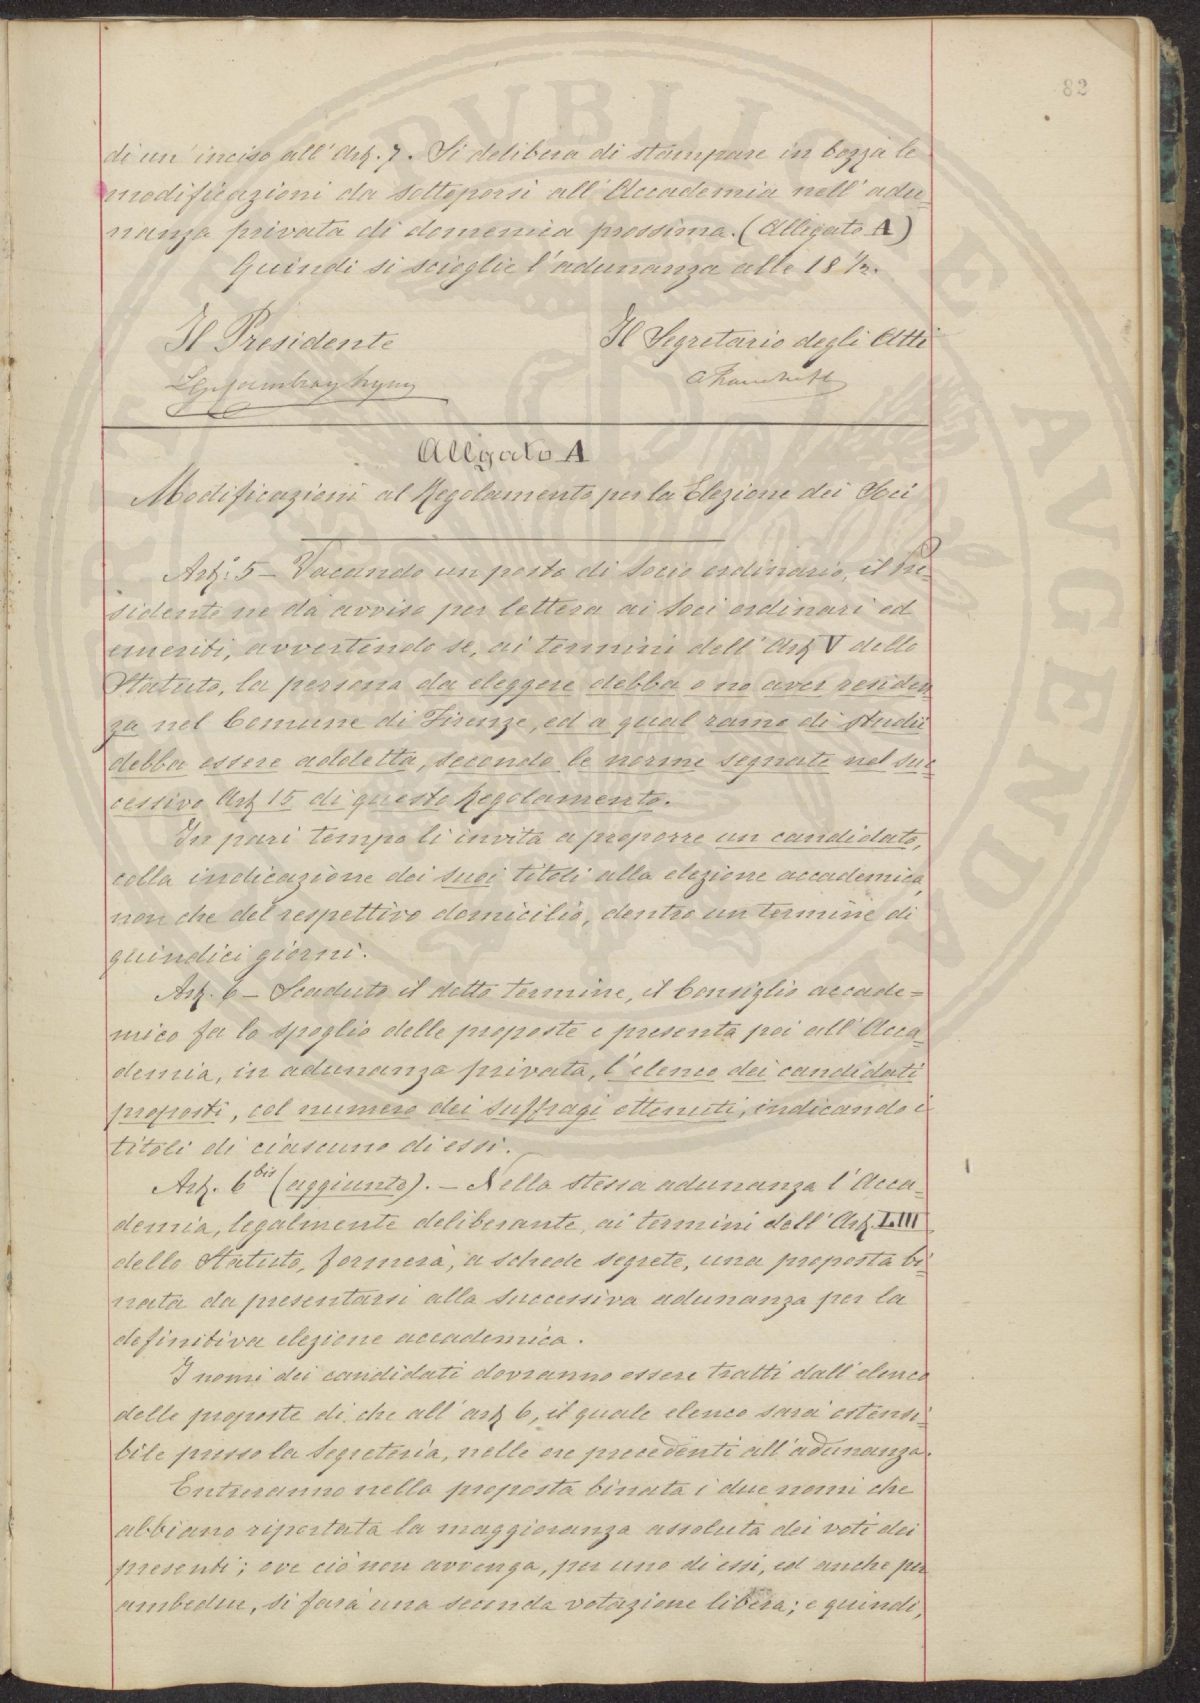 82
di un' inciso all'Art. 7. Si delibera di stampare in bozza le
modificazioni da sottoporsi all'Accademia nell'adu-
nanza privata di domenica prossima. (Allegato A)
Quindi si scioglie l'adunanza alle 18 1/2.
Il Presidente
Il Segretario degli Atti
Allegato A
Modificazioni al Regolamento per la Elezione dei Soci
Art.° 5 – Vacando un posto di Socio ordinario, il Pre-
sidente ne dà avviso per lettera ai Soci ordinari ed
emeriti, avvertendo se, ai termini dell'Art V dello
Statuto, la persona da eleggere debba o no aver residen
za nel Comune di Firenze, ed a qual ramo di studii
debba essere addetta, secondo le norme segnate nel suc-
cessivo Art 15 di questo Regolamento.
In pari tempo li invita a proporre un candidato,
colla indicazione dei suoi titoli alla elezione accademica,
non che del respettivo domicilio, dentro un termine di
quindici giorni.
Art. 6 – Scaduto il detto termine, il Consiglio accade=
mico fa lo spoglio delle proposte e presenta poi all'Acca-
demia, in adunanza privata, l'elenco dei candidati
proposti, col numero dei suffragi ottenuti, indicando i
titoli di ciascuno di essi.
Art. 6 bis (aggiunto). – Nella stessa adunanza l'Acca-
demia, legalmente deliberante, ai termini dell'Art. LIII
dello Statuto, formerà, a schede segrete, una proposta bi-
nata da presentarsi alla successiva adunanza per la
definitiva elezione accademica.
I nomi dei candidati dovranno essere tratti dall'elenco
delle proposte di che all'art 6, il quale elenco sarà ostensi-
bile presso la Segreteria, nelle ore precedenti all'adunanza.
Entreranno nella proposta binata i due nomi che
abbiano riportata la maggioranza assoluta dei voti dei
presenti; ove ciò non avvenga, per uno di essi, ed anche per
ambedue, si farà una seconda votazione libera; e quindi,
PVBLICAE AVGENDAE